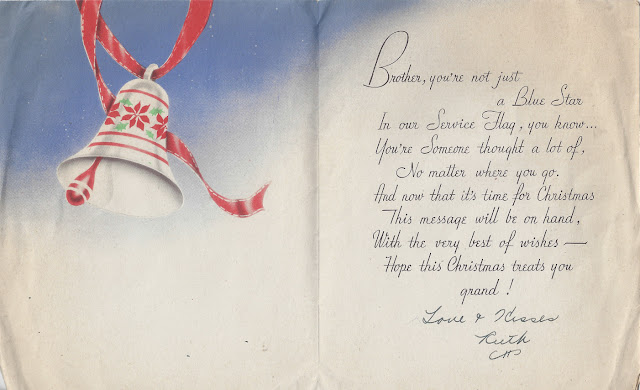 Brother, you're not just
a Blue Star
In our Service Flag, you know...
You're Someone thought a lot of,
No matter where you go.
And now that it's time for Christmas
This message will be on hand,
With the very best of wishes —
Hope this Christmas treats you
grand!
Love & Kisses
Ruth